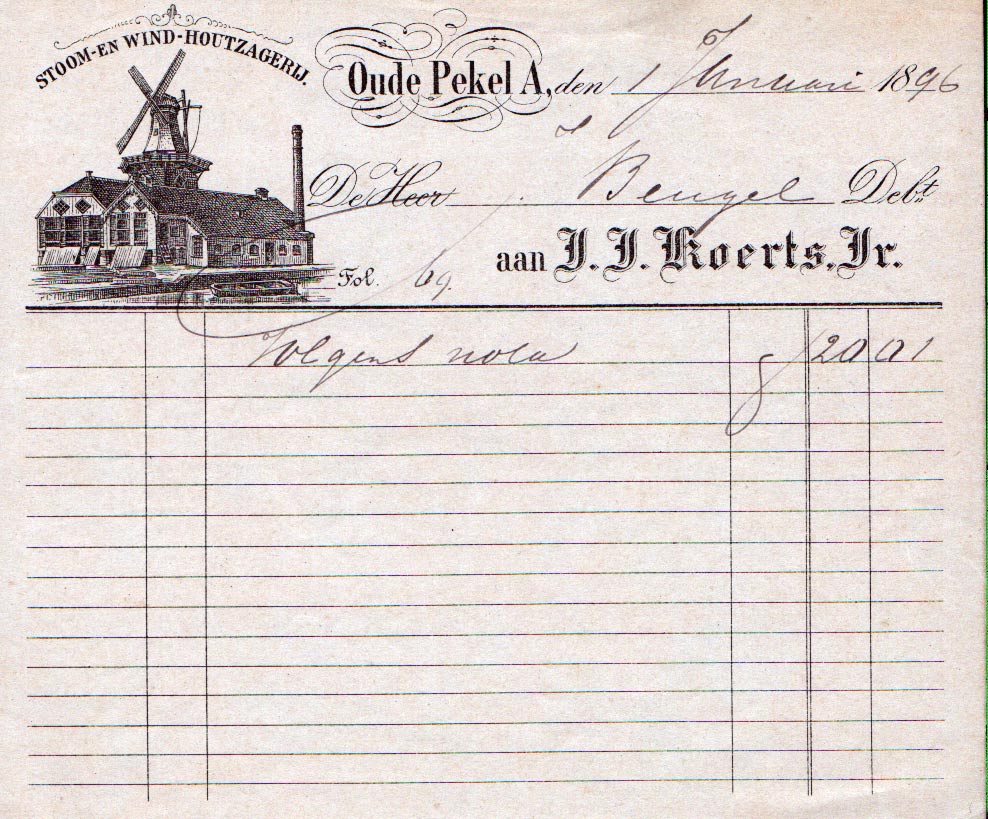 STOOM-EN WIND-HOUTZAGERIJ.
Oude Pekel A, den 1 Januari 1896
De Heer J Bengel Debt
aan J. J. Koerts, Jr.
Fol. 69.
Volgens nota f 120 01